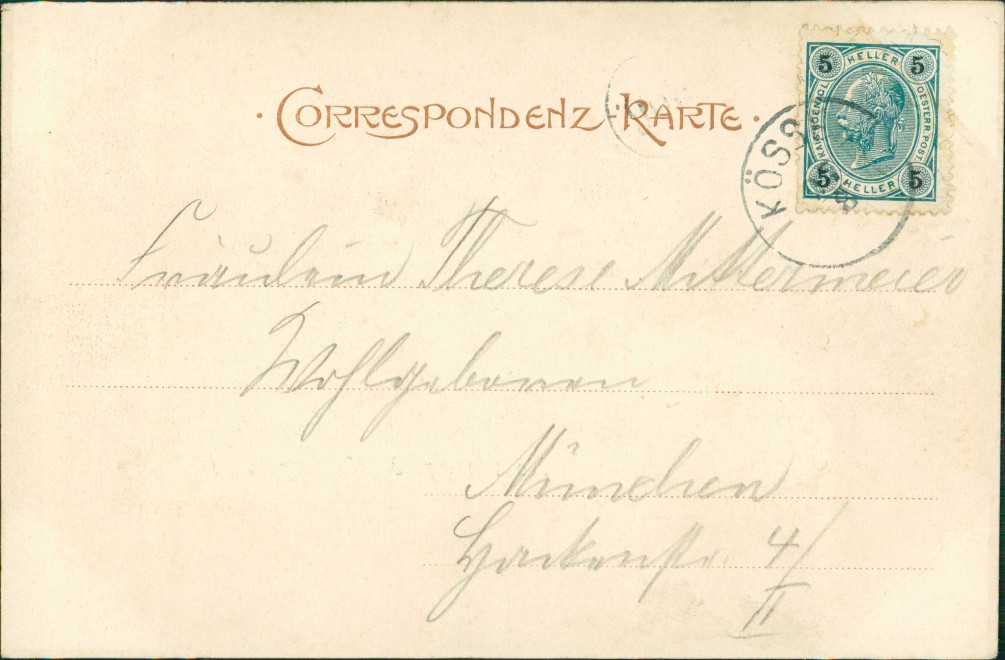 · CORRESPONDENZ-KARTE ·
5 HELLER 5
KAIS.KOENIGL. OESTERR.POST
5 HELLER 5
KÖSS
Fräulein Therese Mittermeier
Wohlgeboren
München
Hackenstr. 4/
II